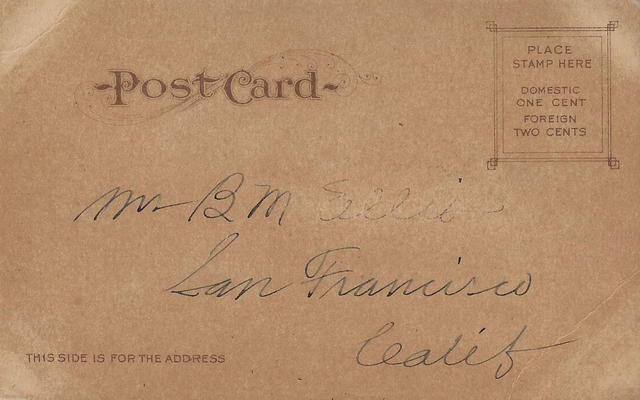 Post Card
PLACE
STAMP HERE
DOMESTIC
ONE CENT
FOREIGN
TWO CENTS
Mr B M Ellis
San Francisco
Calif
THIS SIDE IS FOR THE ADDRESS